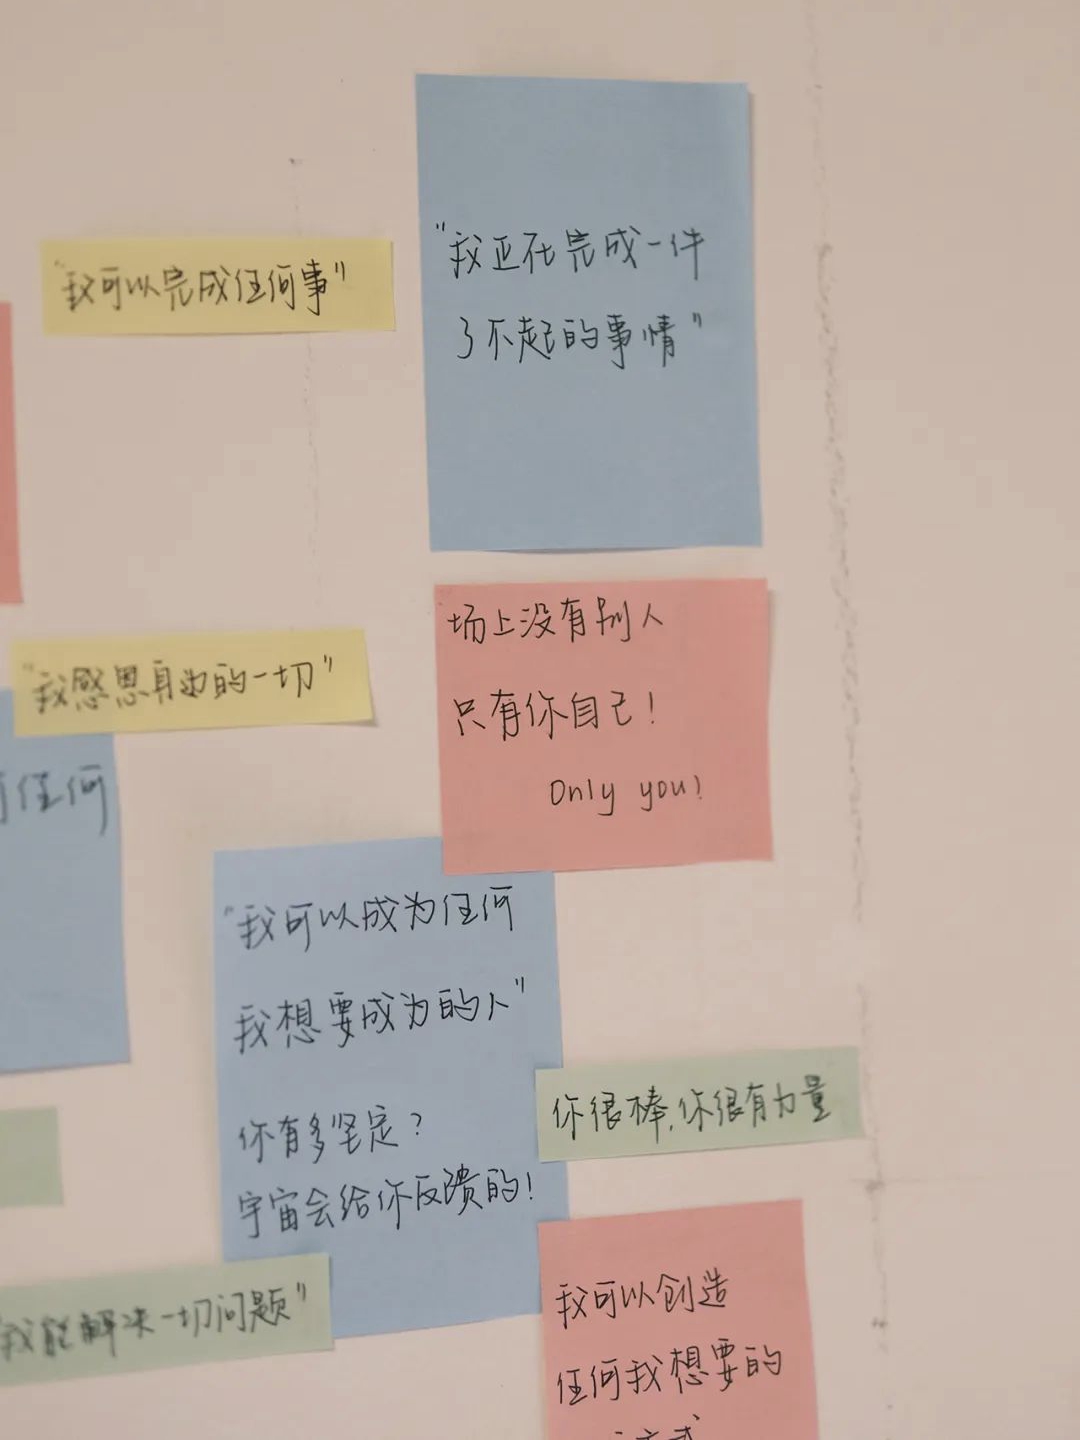 "我可以完成任何事"
"我正在完成一件
了不起的事情"
"我感恩身边的一切"
任何
场上没有别人
只有你自己！
Only you！
"我可以成为任何
我想要成为的人"
你有多坚定？
宇宙会给你反馈的！
你很棒，你很有力量
我能解决一切问题"
我可以创造
任何我想要的